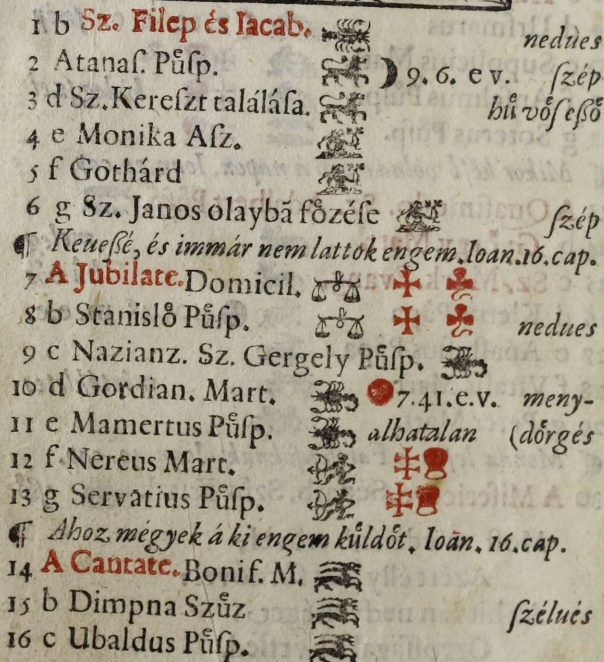 1 b Sz. Filep és Iacab. nedues
2 Atanaſ. Pűſp. 9. 6. e v. ſzép
3 d Sz. Kereſzt találáſa. hűvőſ eßő
4 e Monika Aſz.
5 f Gothárd
6 g Sz. Janos olaybā főzéſe ſzép
¶ Keueßé, és immár nem lattok engem. Ioan. 16. cap.
7 A Jubilate. Domicil.
8 b Stanislő Pűſp. nedues
9 c Nazianz. Sz. Gergely Pűſp.
10 d Gordian. Mart. 7. 41. e. v. meny-
11 e Mamertus Pűſp. alhatalan (dőrgés
12 f Nereus Mart.
13 g Servatius Pűſp.
¶ Ahoz mégyek á ki engem kűldőt. Ioān. 16. cap.
14 A Cantate. Bonif. M.
15 b Dimpna Szűz ſzélués
16 c Ubaldus Pűſp.